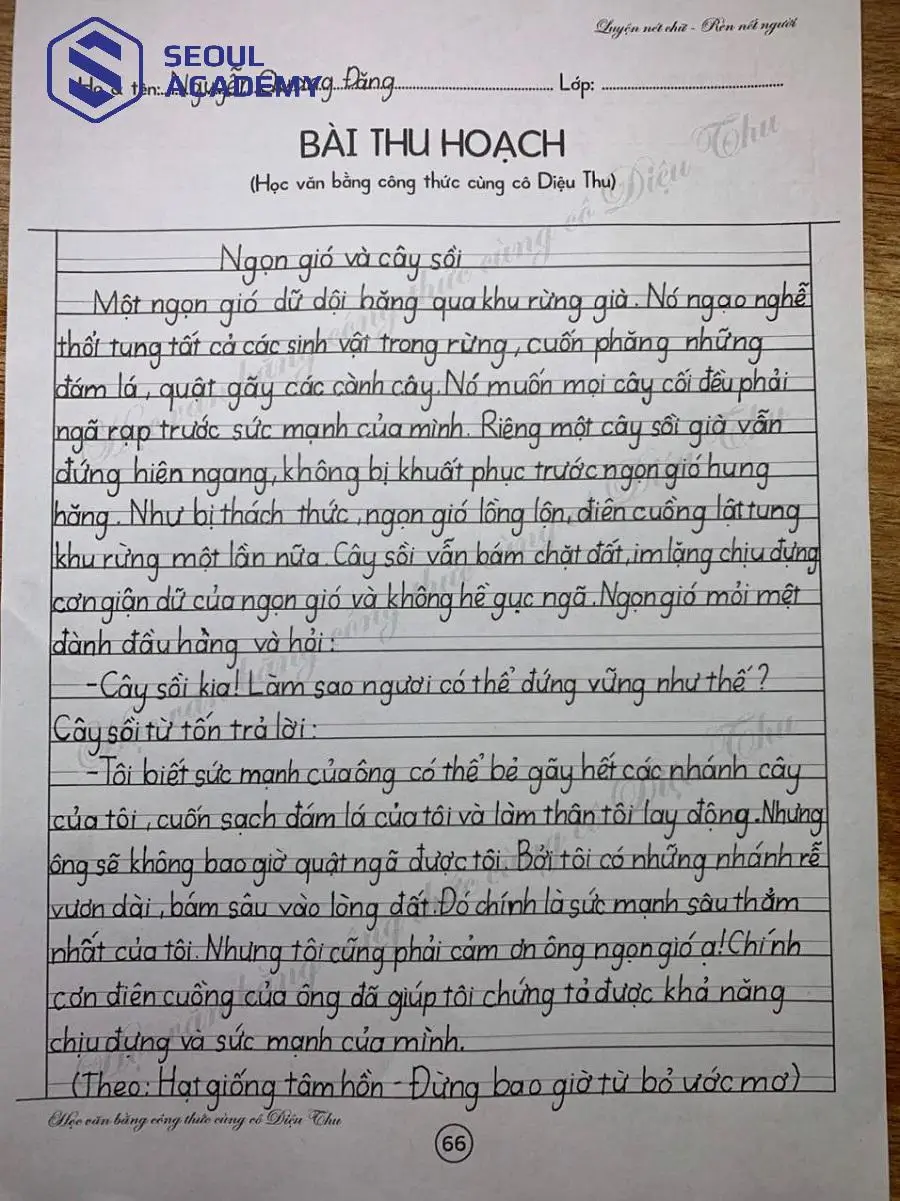 Luyện nét chữ - Rèn nết người
SEOUL
ACADEMY
Họ & tên: Nguyễn Quang Đăng Lớp:
BÀI THU HOẠCH
(Học văn bằng công thức cùng cô Diệu Thu)
Ngọn gió và cây sồi
Một ngọn gió dữ dội băng qua khu rừng già. Nó ngạo nghễ
thổi tung tất cả các sinh vật trong rừng, cuốn phăng những
đám lá, quật gãy các cành cây. Nó muốn mọi cây cối đều phải
ngã rạp trước sức mạnh của mình. Riêng một cây sồi già vẫn
đứng hiên ngang, không bị khuất phục trước ngọn gió hung
hăng. Như bị thách thức, ngọn gió lồng lộn, điên cuồng lật tung
khu rừng một lần nữa. Cây sồi vẫn bám chặt đất, im lặng chịu đựng
cơn giận dữ của ngọn gió và không hề gục ngã. Ngọn gió mỏi mệt
đành đầu hàng và hỏi:
- Cây sồi kia! Làm sao ngươi có thể đứng vững như thế?
Cây sồi từ tốn trả lời:
- Tôi biết sức mạnh của ông có thể bẻ gãy hết các nhánh cây
của tôi, cuốn sạch đám lá của tôi và làm thân tôi lay động. Nhưng
ông sẽ không bao giờ quật ngã được tôi. Bởi tôi có những nhánh rễ
vươn dài, bám sâu vào lòng đất. Đó chính là sức mạnh sâu thẳm
nhất của tôi. Nhưng tôi cũng phải cảm ơn ông ngọn gió ạ! Chính
cơn điên cuồng của ông đã giúp tôi chứng tỏ được khả năng
chịu đựng và sức mạnh của mình.
(Theo: Hạt giống tâm hồn - Đừng bao giờ từ bỏ ước mơ)
Học văn bằng công thức cùng cô Diệu Thu
66